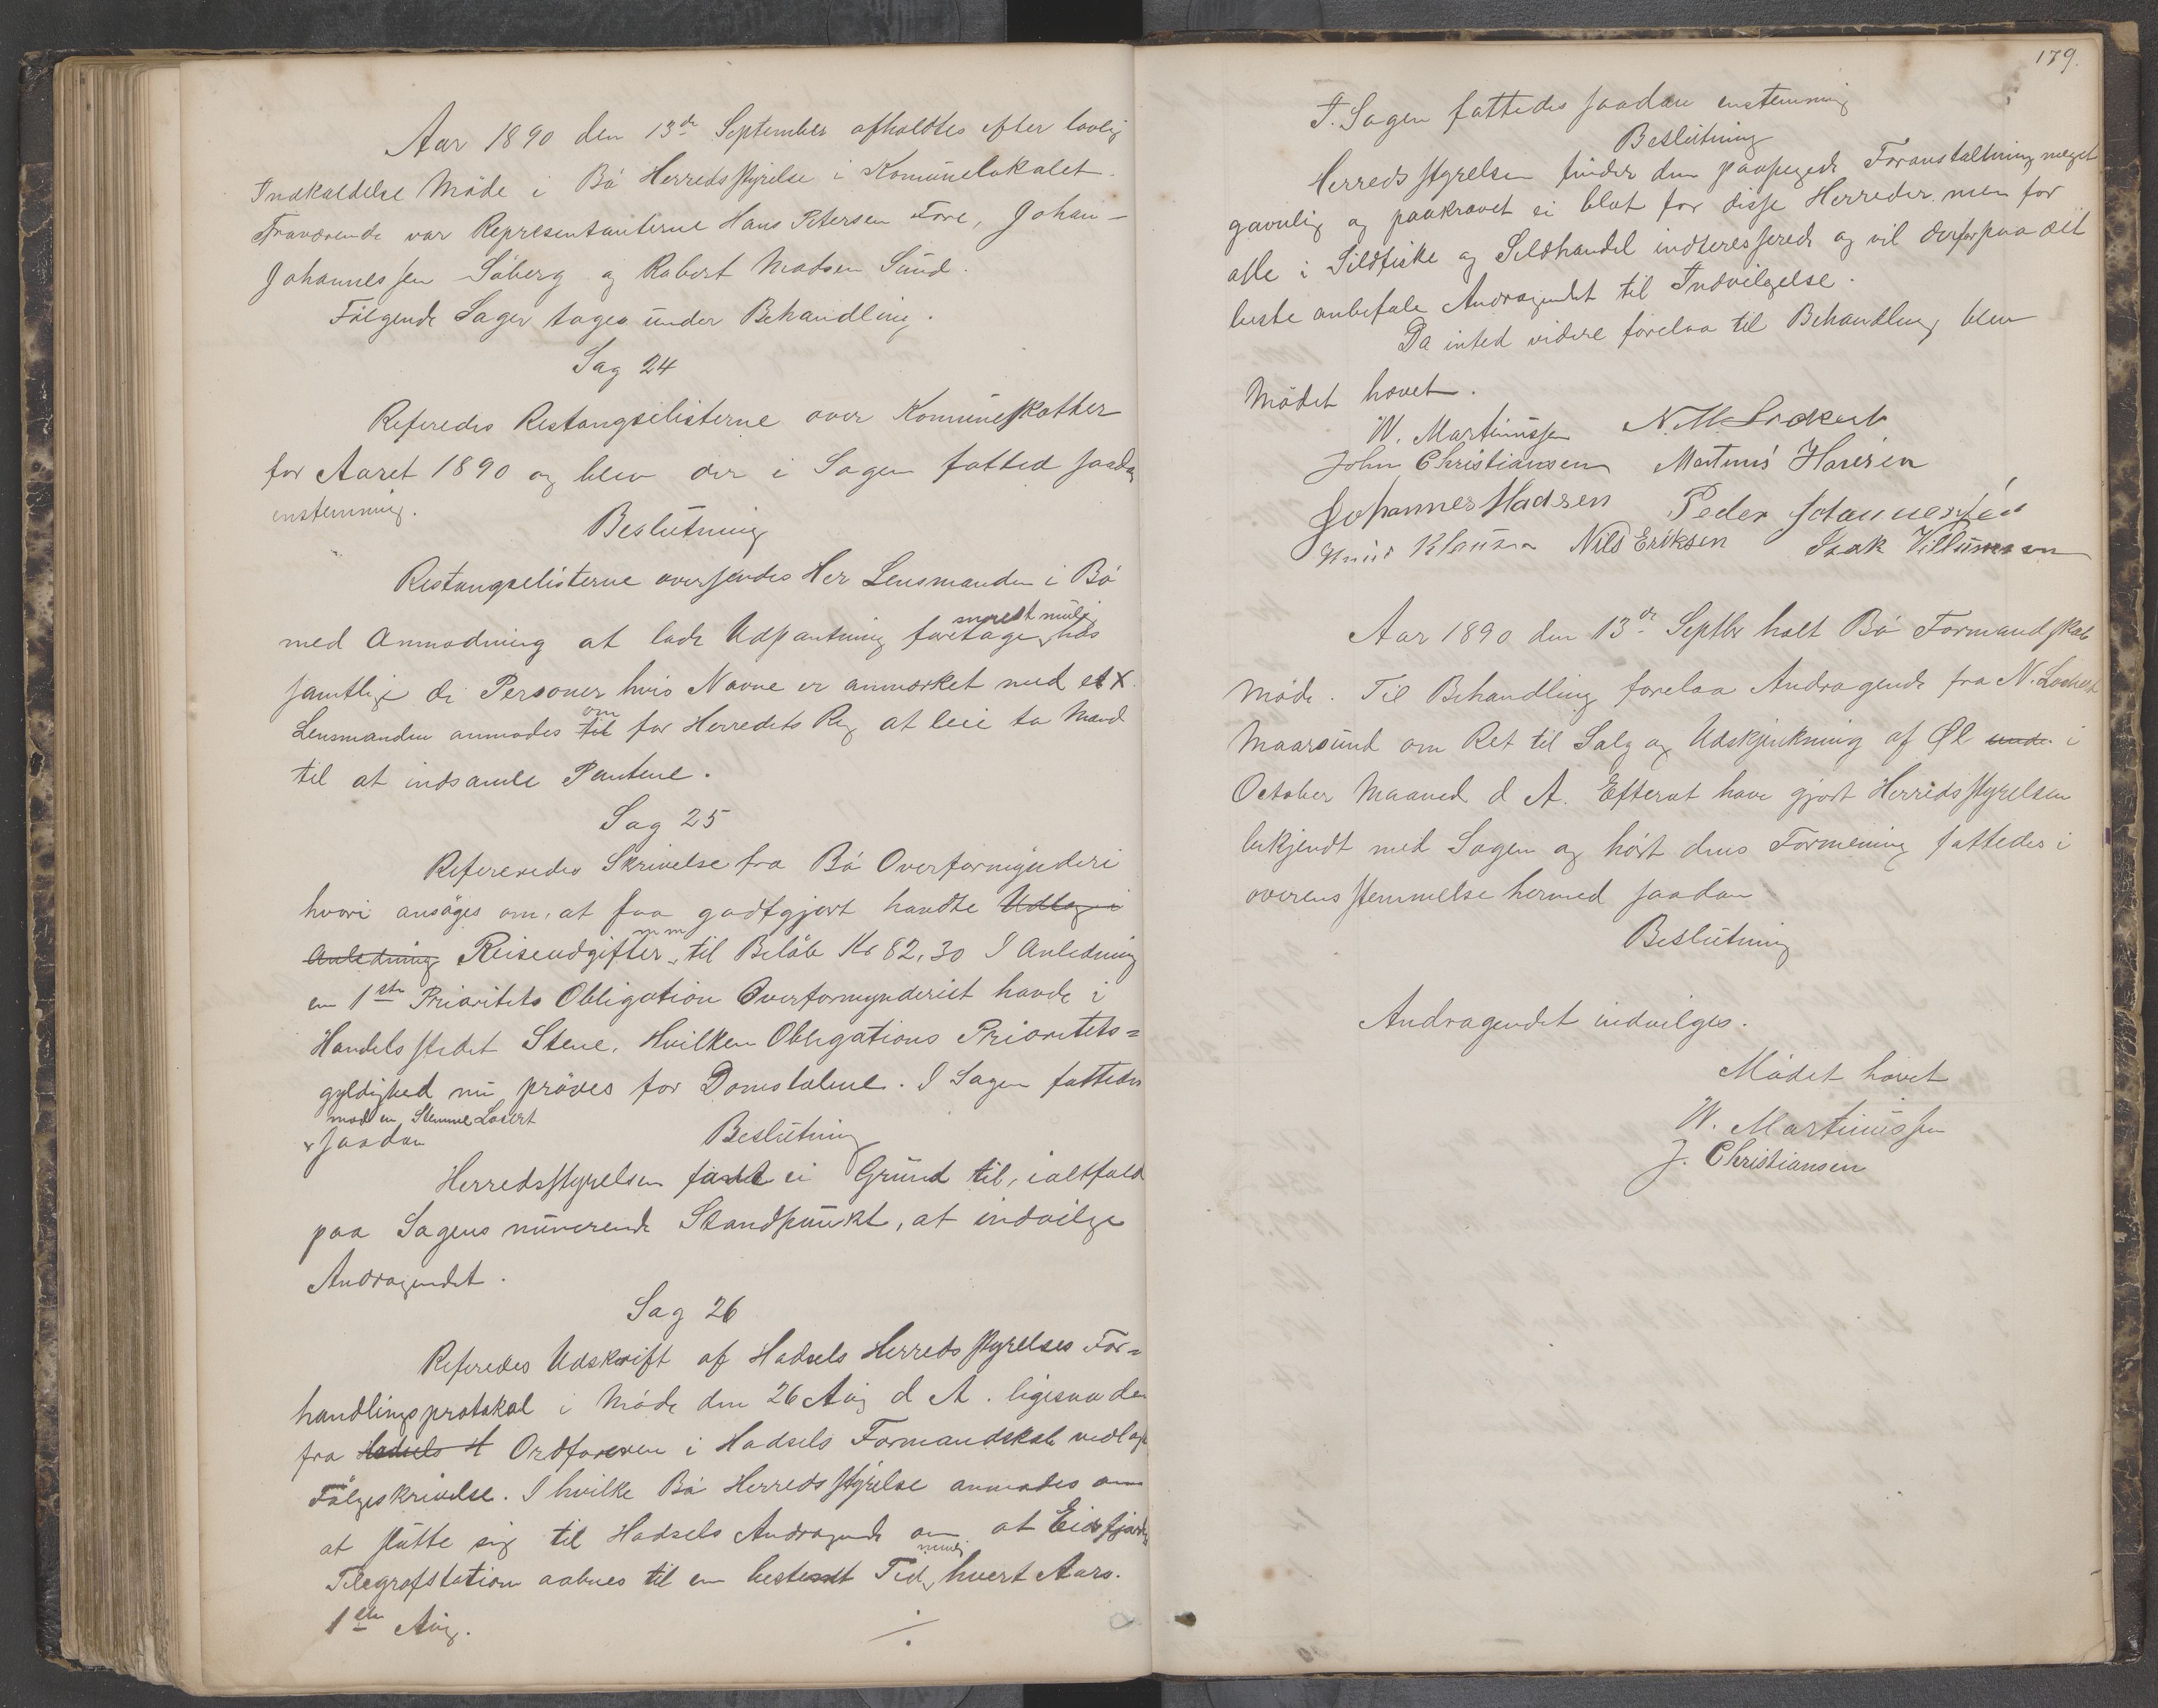 Aar 1890 den 13de September afholdtes efter lovlig
Indkaldelse Möde i Bö Herredsstyrelse i Komunelokalet.
Fraværende var Representanterne Hans Petersen Fore, Johan
Johannessen Söberg og Robert Madsen Sund.
Fölgende Sager toges under Behandling.
Sag 24
Referedes Restangselisterne over Komuneskatter
for Aaret 1890 og blev der i Sagen fatted saadan
enstemmig.
Beslutning
Restangselisterne oversendes Her Lensmanden i Bö
med Anmodning at lade Udpantning foretage snarest mulig hos
samtlige de Personer hvis Navne er anmærket med et X.
Lensmanden anmodes til om for Herredets Reg at leie to Mand
til at indsamle Pantene.
Sag 25
Refereredes Skrivelse fra Bö Overformynderi
hvori ansöges om, at faa godtgjort havdte Udlæg i
Anledning Reiseudgifter m m til Belöb Kr 82,30 I Anledning
en 1ste Prioritets Obligation Overformynderiet havde i
Handelsstedet Stene. Hvilken Obligations Prioritets=
gyldighed nu pröves for Domstolene. I Sagen fattedes
mod en Stemme Lockert
saadan Beslutning
Herredsstyrelsen fandt ei Grund til, ialtfald
paa Sagens nuverende Standpunkt, at indvilge
Andragendet.
Sag 26
Referedes Udskrift af Hadsels Herredsstyrelses For=
handlingsprotokol i Möde den 26 Aug d A. ligesaa den
fra Hadsels H Ordföreren i Hadsels Formandskab vedlagte
Fölgeskrivelse. I hvilke Bö Herredsstyrelse anmodes om
at stötte sig til Hadsels Andragende om at Eidsfjordens
Telegrafstation aabnes til en bestemt Tid nemlig hvert Aars.
1ste Aug. ./.
179.
I. Sagen fattedes saadan enstemmig
Beslutning
Herredsstyrelsen finder den paapegede Foranstaltning meget
gavnlig og paakrævet ei blot for disse Herreder men for
alle i Sildfiske og Sildhandel indteresserede og vil derfor paa det
beste anbefale Andragendet til Indvilgelse.
Da inted videre forelaa til Behandling blev
Mödet hævet.
W. Martinussen N. M Lockert
John Christiansen Martinus Hansen
Johannes Madsen Peder Johannessen
Knut Klausen Nils Eriksen Isak Villumsen
Aar 1890 den 13de Septbr holt Bö Formandskab
Möde. Til Behandling forelaa Andragende fra N. Lockert
Maarsund om Ret til Salg og Udskjenkning af Øl unde i
October Maaned d A. Efterat have gjort Herredsstyrelsen
bekjendt med Sagen og hört dens Formening fattedes i
overensstemmelse hermed saadan
Beslutning
Andragendet indvilges.
Mödet hævet
W. Martinussen
J. Christiansen